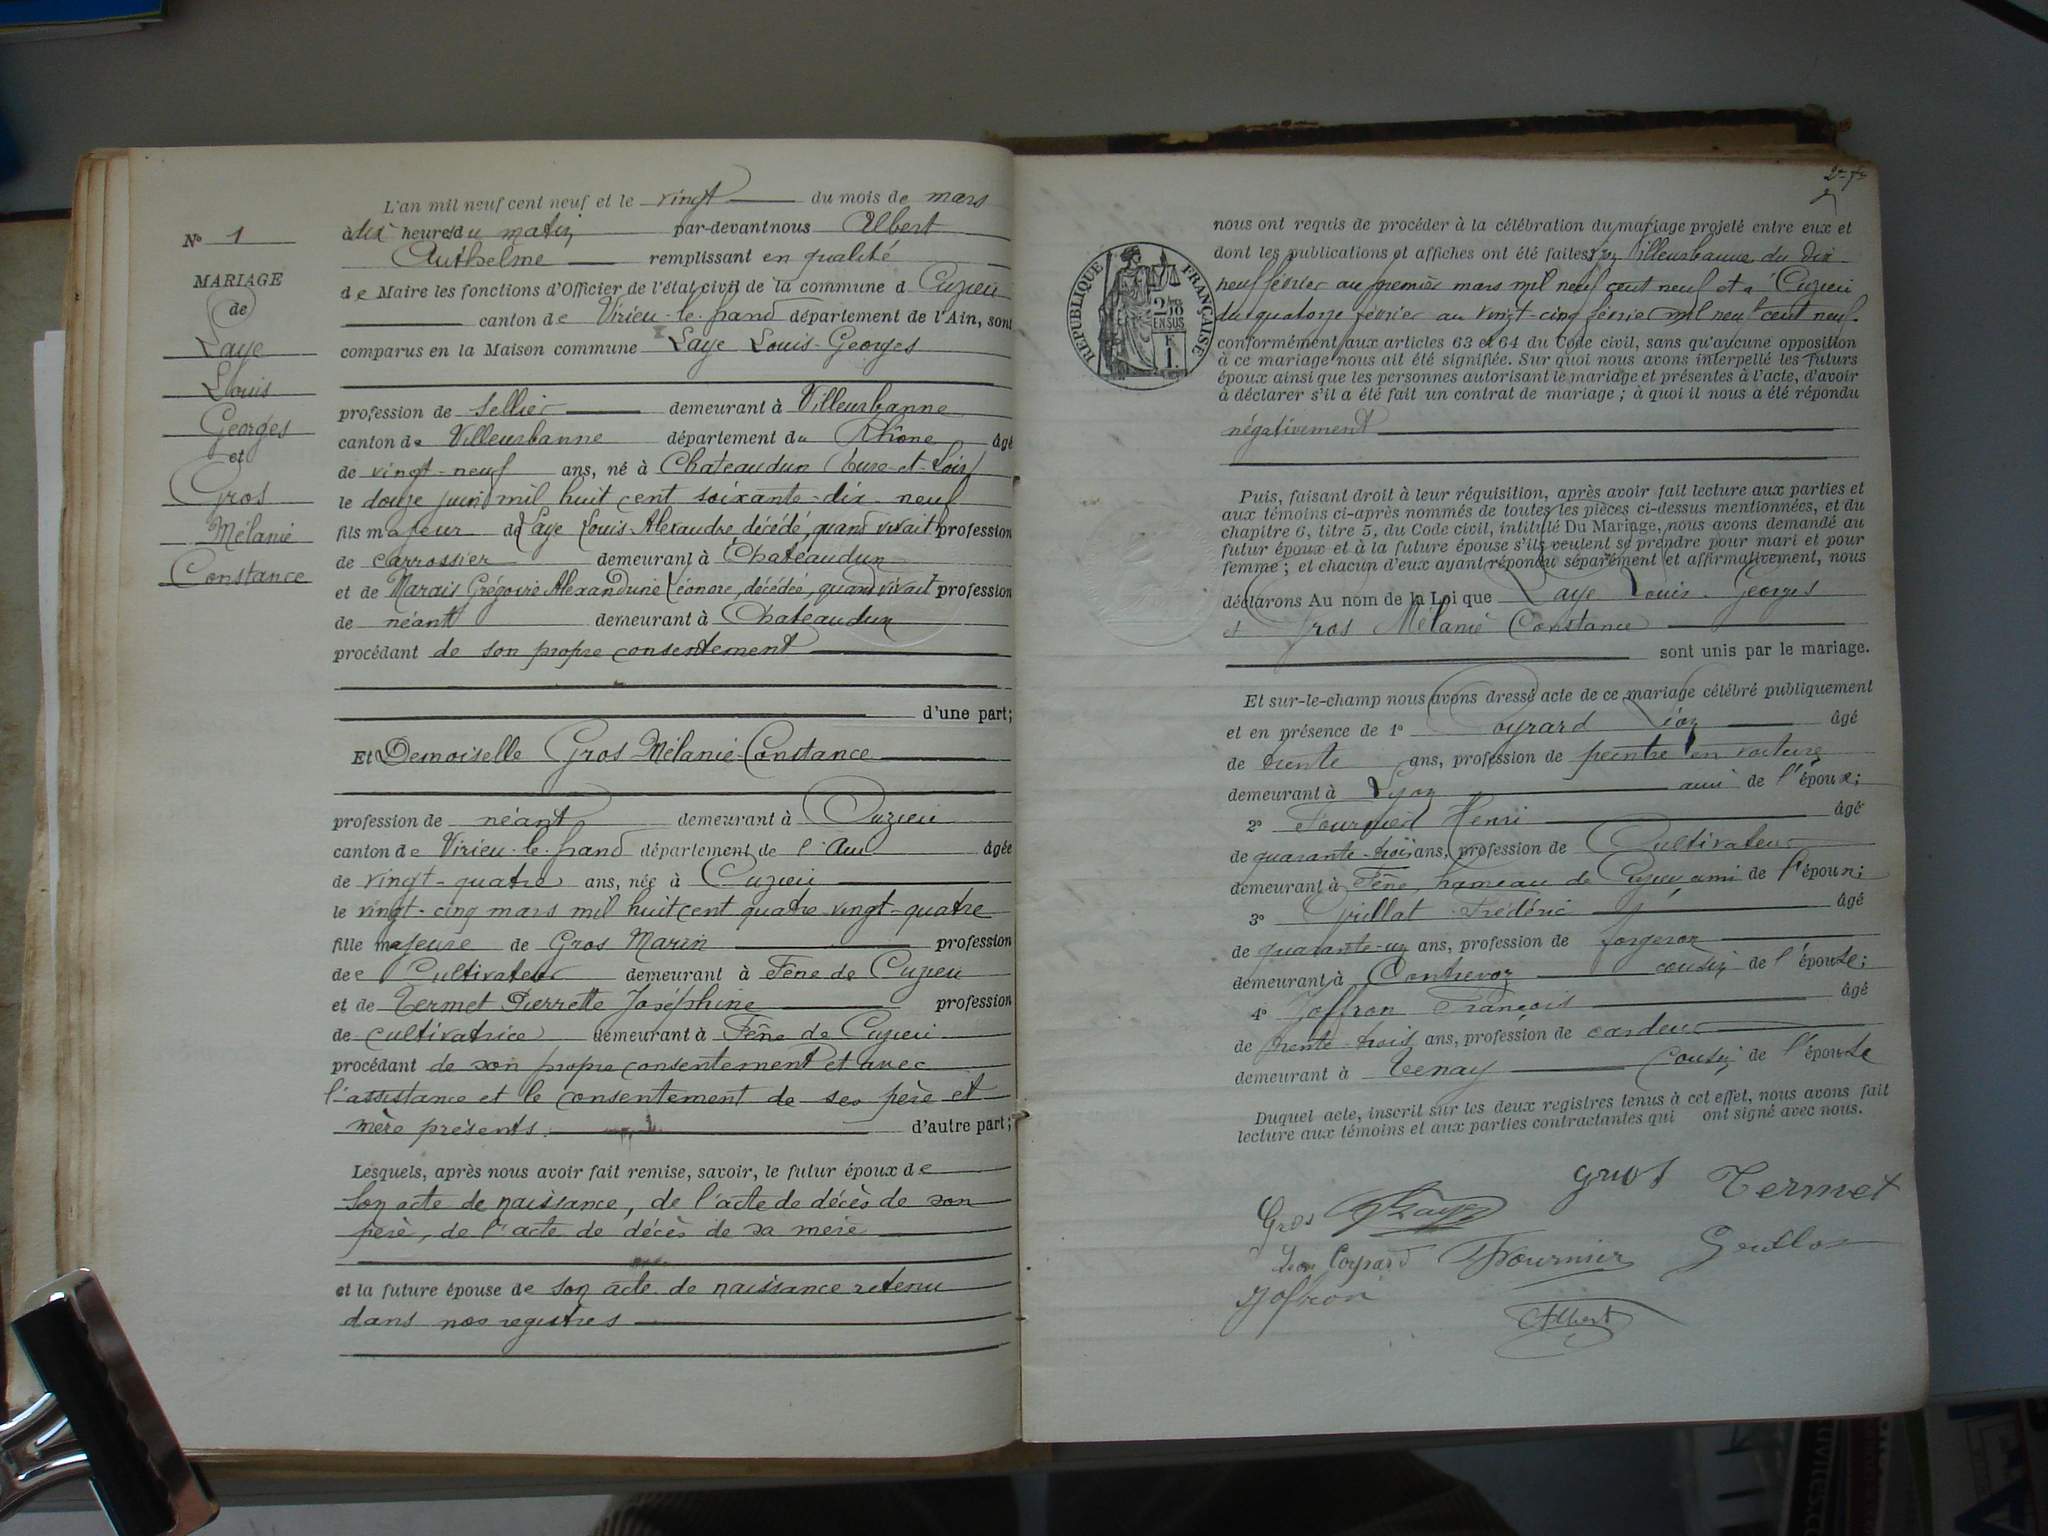 N° 1
MARIAGE
de
Laye
Louis
Georges
et
Gros
Mélanie
Constance
L'an mil neuf cent neuf et le vingt du mois de mars
à dix heures du matin par-devant nous Albert
Anthelme remplissant en qualité
de Maire les fonctions d'Officier de l'état civil de la commune d Cuzieu
canton de Virieu-le-grand département de l'Ain, sont
comparus en la Maison commune Laye Louis-Georges
profession de sellier demeurant à Villeurbanne
canton de Villeurbanne département du Rhône âgé
de vingt-neuf ans, né à Chateaudun (Eure-et-Loir)
le douze juin mil huit cent soixante-dix-neuf
fils majeur de Laye Louis Alexandre, décédé, quand vivait profession
de carrossier demeurant à Chateaudun
et de Marais Grégoire Alexandrine Léonore, décédée, quand vivait profession
de néant demeurant à Chateaudun
procédant de son propre consentement
d'une part;
Et Demoiselle Gros Mélanie-Constance
profession de néant demeurant à Cuzieu
canton de Virieu-le-grand département de l'Ain âgée
de vingt-quatre ans, née à Cuzieu
le vingt-cinq mars mil huit cent quatre-vingt-quatre
fille majeure de Gros Marin profession
de Cultivateur demeurant à Fêne de Cuzieu
et de Termet Pierrette Joséphine profession
de cultivatrice demeurant à Fêne de Cuzieu
procédant de son propre consentement et avec
l'assistance et le consentement de ses père et
mère présents. d'autre part;
Lesquels, après nous avoir fait remise, savoir, le futur époux de
son acte de naissance, de l'acte de décès de son
père, de l'acte de décès de sa mère
et la future épouse de son acte de naissance retenu
dans nos registres
RÉPUBLIQUE FRANÇAISE
2/10
EN SUS
1
nous ont requis de procéder à la célébration du mariage projeté entre eux et
dont les publications et affiches ont été faites à Villeurbanne du dix-
neuf février au premier mars mil neuf cent neuf et à Cuzieu
du quatorze février au vingt-cinq février mil neuf cent neuf.
conformément aux articles 63 et 64 du Code civil, sans qu'aucune opposition
à ce mariage nous ait été signifiée. Sur quoi nous avons interpellé les futurs
époux ainsi que les personnes autorisant le mariage et présentes à l'acte, d'avoir
à déclarer s'il a été fait un contrat de mariage ; à quoi il nous a été répondu
négativement
Puis, faisant droit à leur réquisition, après avoir fait lecture aux parties et
aux témoins ci-après nommés de toutes les pièces ci-dessus mentionnées, et du
chapitre 6, titre 5, du Code civil, intitulé Du Mariage, nous avons demandé au
futur époux et à la future épouse s'ils veulent se prendre pour mari et pour
femme ; et chacun d'eux ayant répondu séparément et affirmativement, nous
déclarons Au nom de la Loi que Laye Louis-Georges
et Gros Mélanie Constance
sont unis par le mariage.
Et sur-le-champ nous avons dressé acte de ce mariage célébré publiquement
et en présence de 1° Coyrard Léon âgé
de trente ans, profession de peintre en voiture
demeurant à Lyon ami de l'époux;
2° Henri âgé
de quarante-trois ans, profession de Cultivateur
demeurant à Fêne, hameau de Cuzieu ami de l'époux;
3° Guillot Frédéric âgé
de quarante-un ans, profession de forgeron
demeurant à Contrevoz cousin de l'épouse;
4° Joffron François âgé
de trente-trois ans, profession de cardeur
demeurant à Tenay cousin de l'épouse
Duquel acte, inscrit sur les deux registres tenus à cet effet, nous avons fait
lecture aux témoins et aux parties contractantes qui ont signé avec nous.
gros Termet
Gros Laye
Léon Coyrard Fournier Guillot
Joffron
Albert